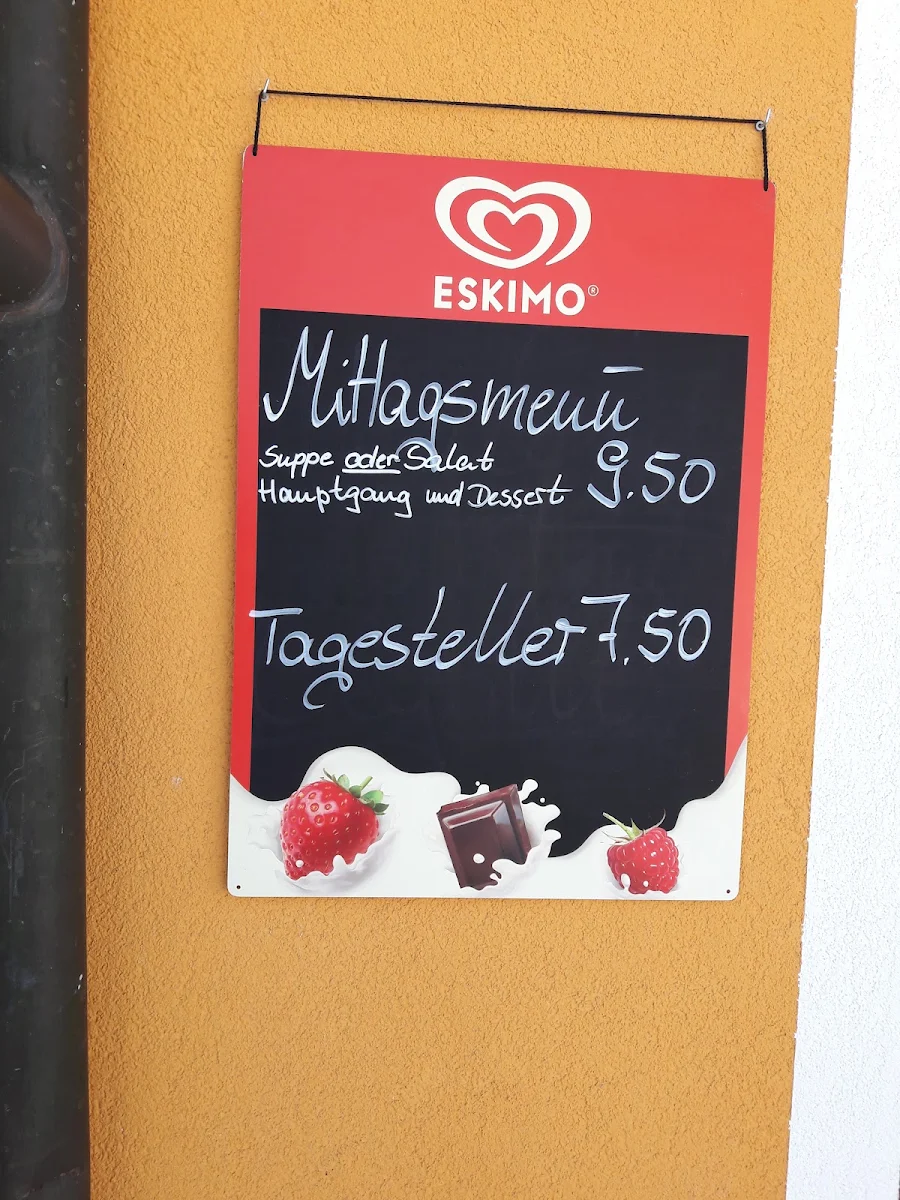 ESKIMO®
Mittagsmenü
Suppe oder Salat
Hauptgang und Dessert 9.50
Tagesteller 7.50